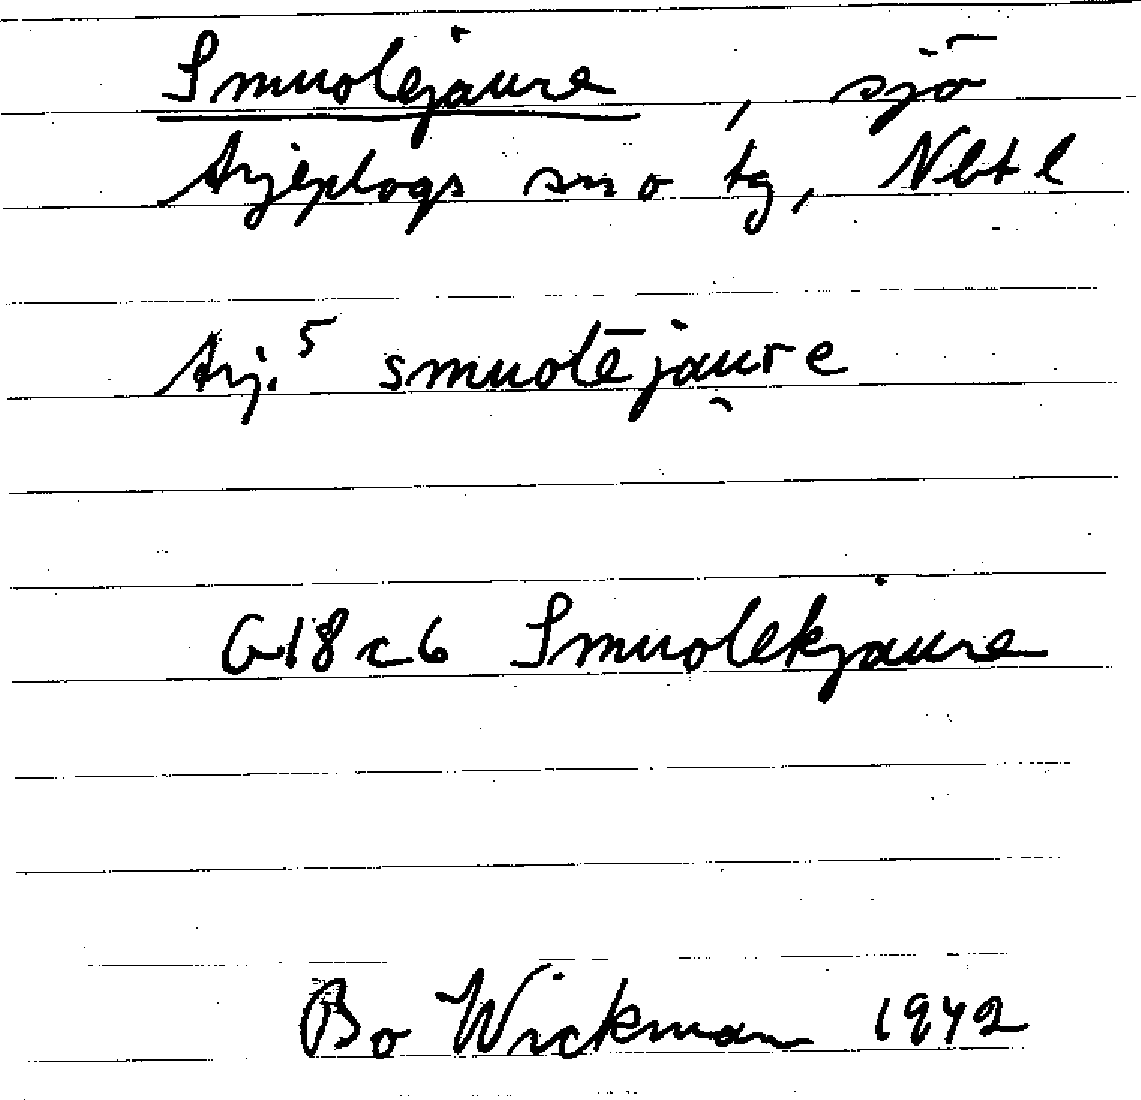 Smuolejaure, sjö
Arjeplogs sn o tg, Nbt l
Arj.⁵ smuolējau̯re
G18c6 Smuolekjaure
Bo Wickman 1942